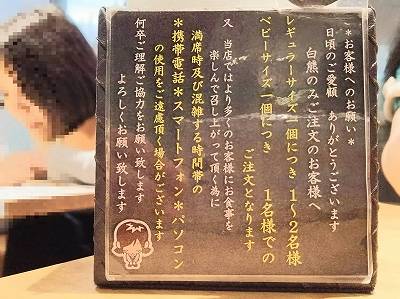 ＊お客様へのお願い＊
日頃のご愛顧 ありがとうございます
白熊のみご注文のお客様へ
レギュラーサイズ一個につき 1～2名様
ベビーサイズ一個につき 1名様での
ご注文となります
又 当店ではより多くのお客様にお食事を
楽しんで召し上がって頂く為に
満席時及び混雑する時間帯の
＊携帯電話＊スマートフォン＊パソコン
の使用をご遠慮頂く場合がございます
何卒ご理解ご協力をお願い致します
よろしくお願い致します